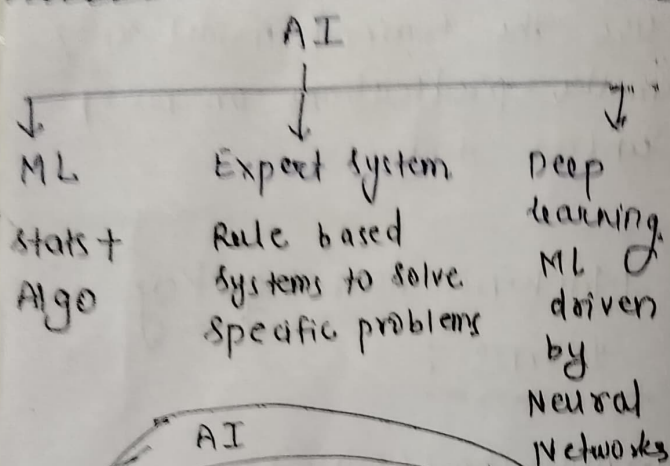 AI
ML
stats +
Algo
Expert system
Rule based
systems to solve
specific problems
Deep
learning
ML
driven
by
Neural
Networks
AI